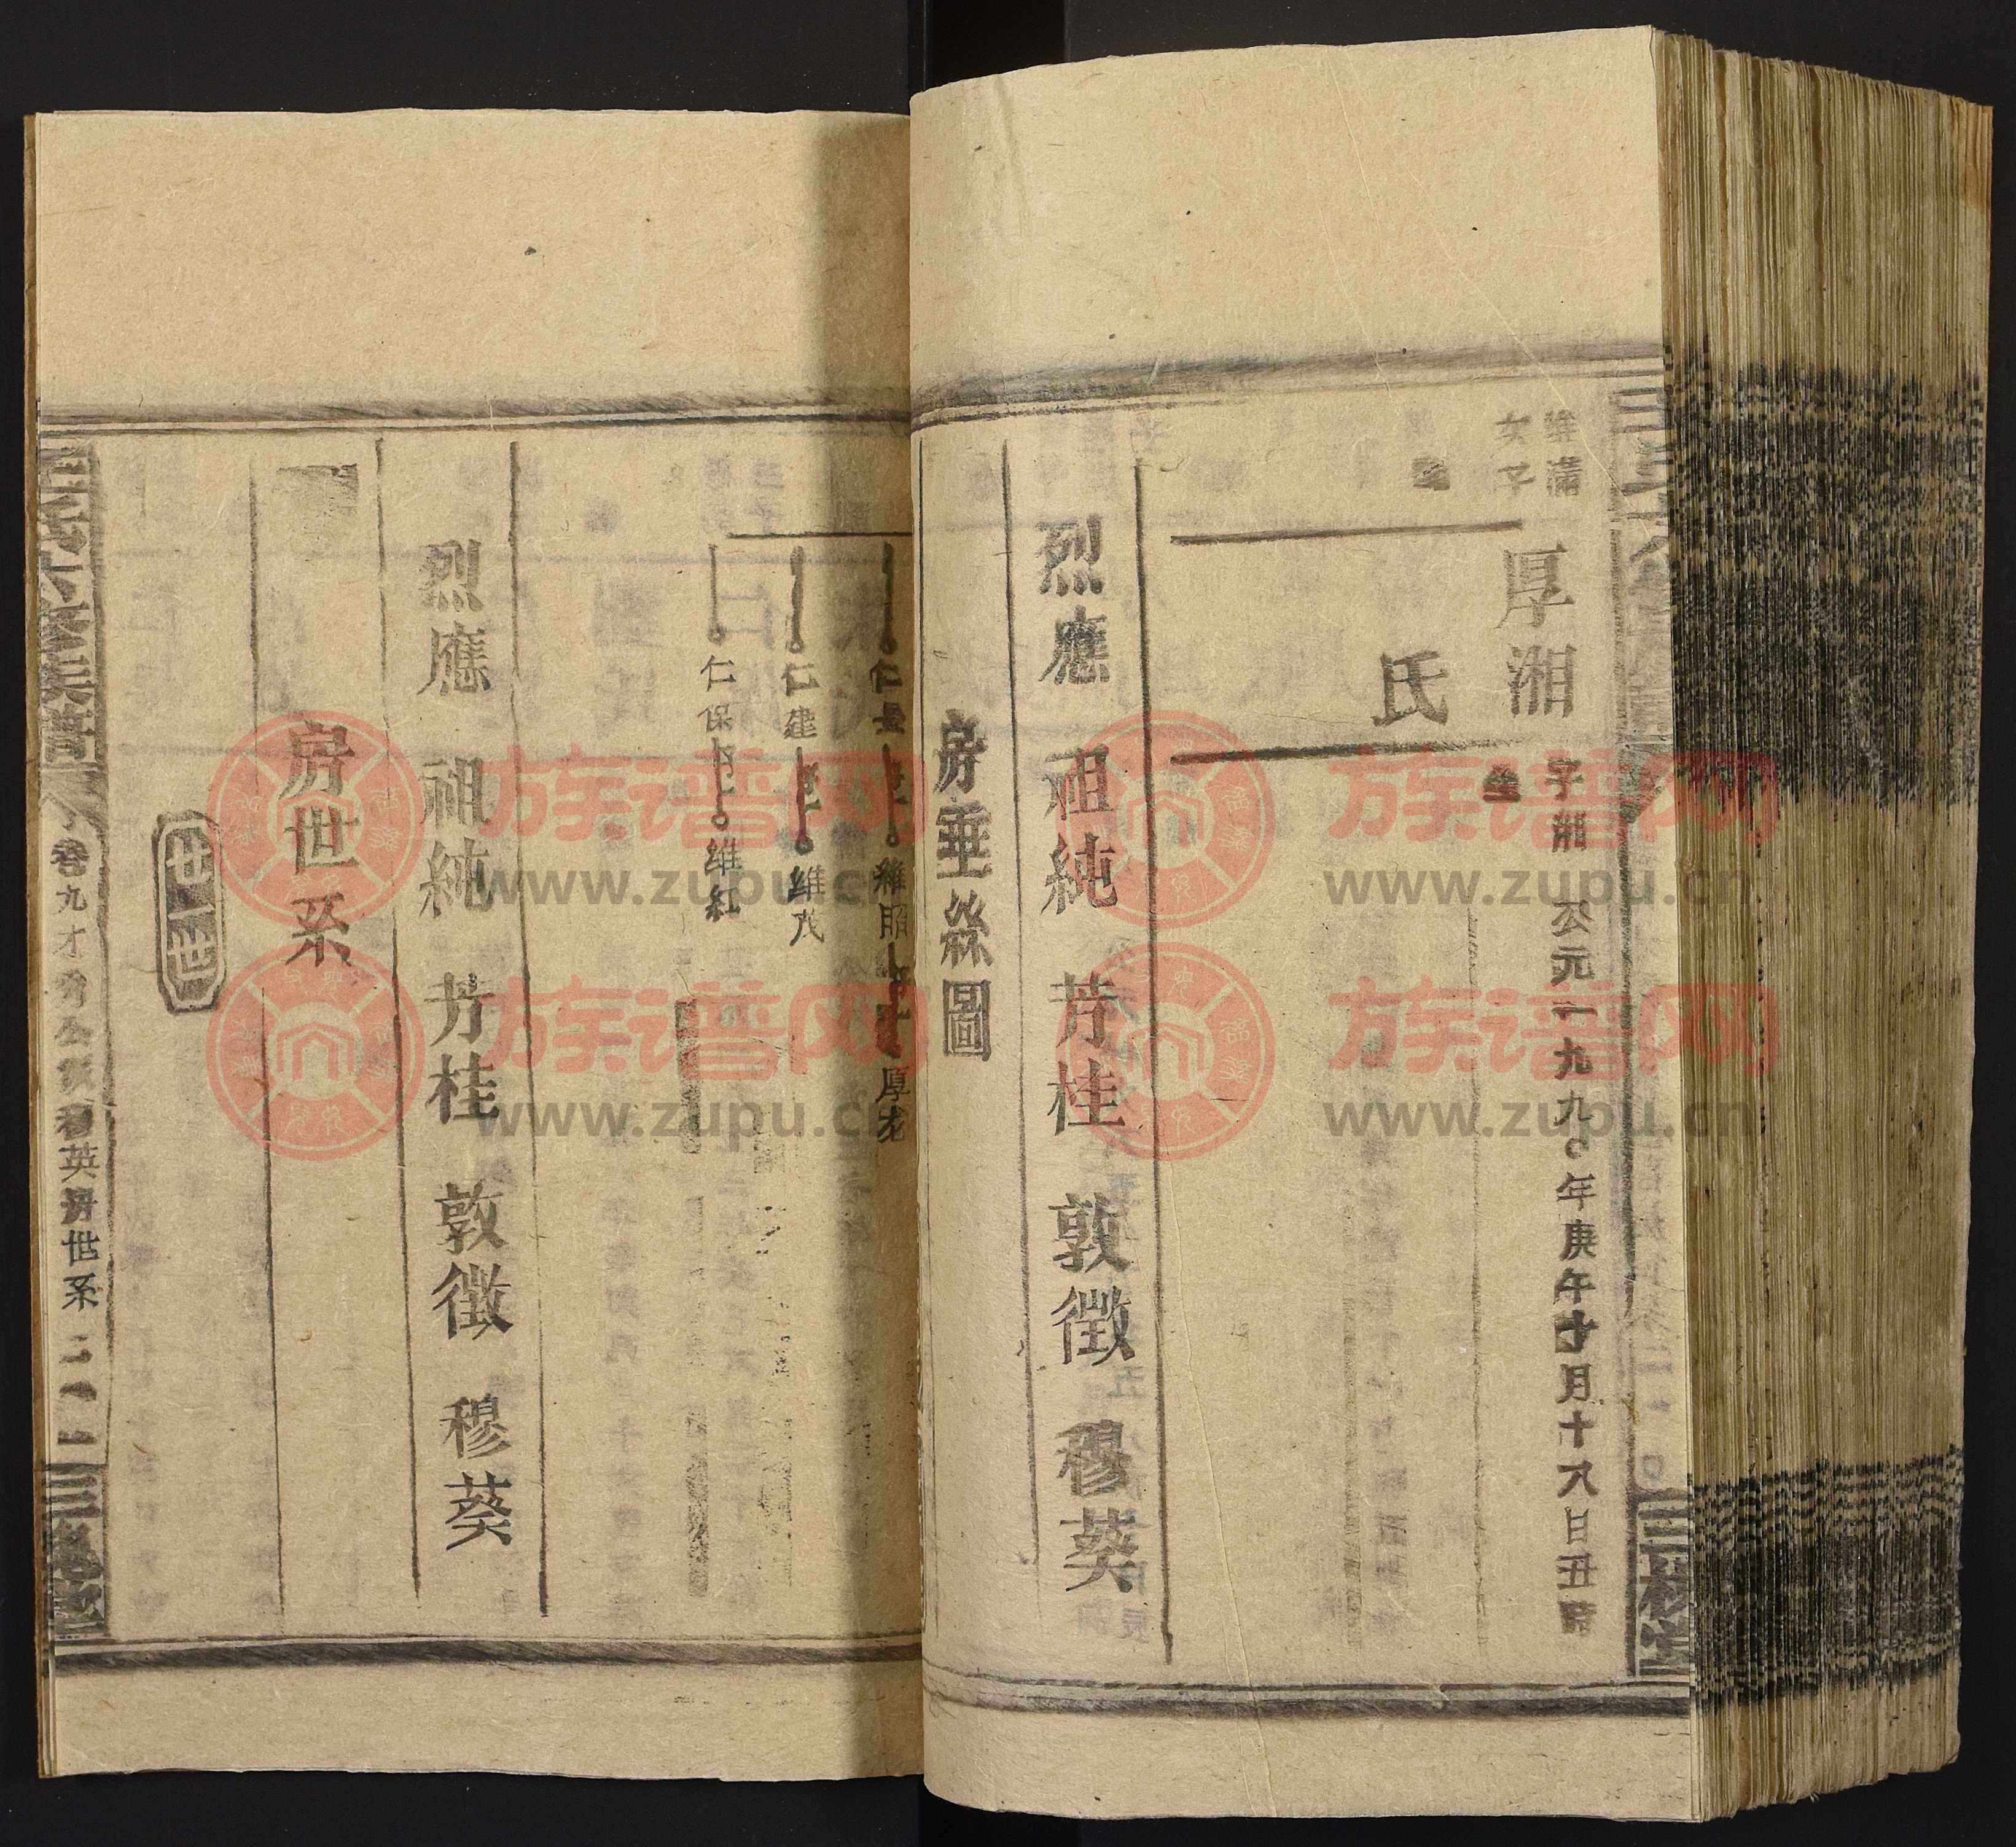 維滿
女子
厚湘
字湘 公元一九九〇年庚午十月十八日丑時
氏
烈應 祖純 芳桂 敦徵 穆葵
房垂絲圖
仁長 維昭 厚龙
仁建 維茂
仁保 维紅
烈應 祖純 芳桂 敦徵 穆葵
房世系
王氏六修族譜 卷九
英房世系
三槐堂
族谱网
www.zupu.cn
族谱网
www.zupu.cn
族谱网
www.zupu.cn
族谱网
www.zupu.cn